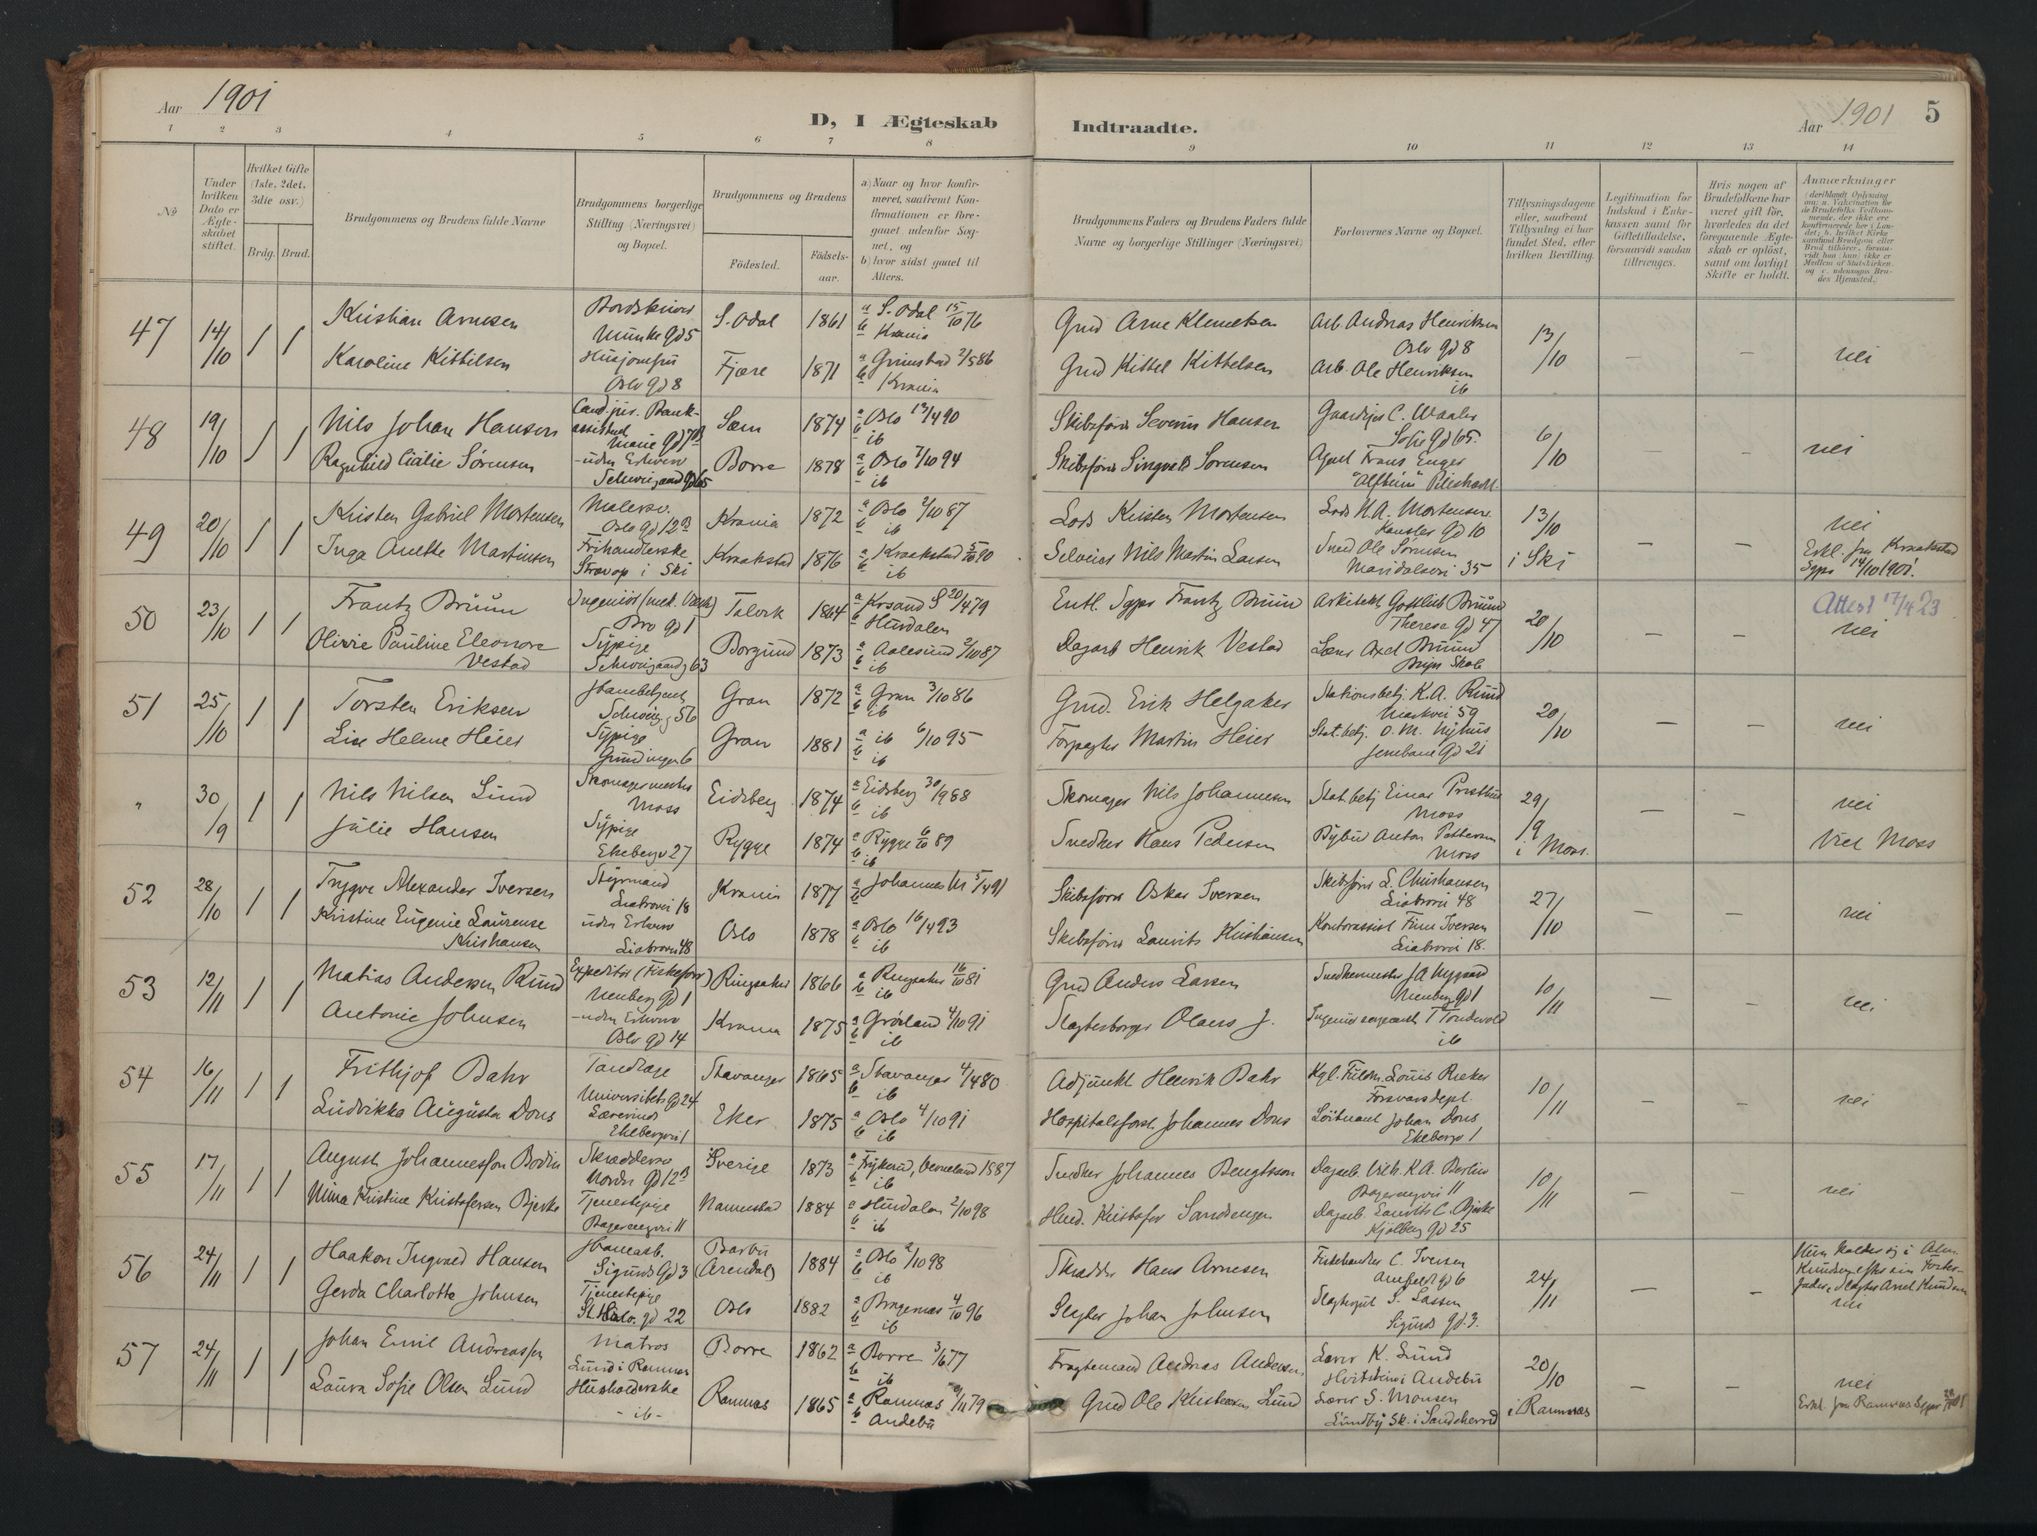 Aar 1901
D, I Ægteskab Indtraadte.
Aar 1901 5
1 2 3 4 5 6 7 8 9 10 11 12 13 14
№
Under hvilken Dato er Ægteskabet stiftet.
Hvilket Gifte (1ste, 2det, 3die osv.)
Brdg. Brud.
Brudgommens og Brudens fulde Navne
Brudgommens borgerlige Stilling (Næringsvei) og Bopæl.
Brudgommens og Brudens
Fødested.
Fødselsaar.
a) Naar og hvor konfirmeret, saafremt Konfirmationen er foregaaet udenfor Sognet, og
b) hvor sidst gaaet til Alters.
Brudgommens Faders og Brudens Faders fulde Navne og borgerlige Stillinger (Næringsvei)
Forlovernes Navne og Bopæl.
Tillysningsdagene eller, saafremt Tillysning ei har fundet Sted, efter hvilken Bevilling.
Legitimation for Indskud i Enkekassen samt for Giftetilladelse, forsaavidt saadan tiltrænges.
Hvis nogen af Brudefolkene har været gift før, hvorledes da det foregaaende Ægteskab er opløst, samt om lovligt Skifte er holdt.
Anmærkninger
47 14/10 1 1 Kristian Arnesen Munke gd 5 S. Odal 1861 a S. Odal 15/10 76 b Krania Gmd Arne Klemetsen Arb. Andreas Henriksen Oslo gd 8 13/10 — — nei
Karoline Kittilsen Husjomfru Oslo gd 8 Fjære 1871 a Grimstad 2/5 86 b Krania Gmd Kittel Kittelsen Arb. Ole Henriksen ib
48 19/10 1 1 Nils Johan Hansen Cand. jur. Bankassistent Sem 1874 a Oslo 13/4 90 b ib Skibsfører Severin Hansen Gaardejer C. Waaler Sofie gd 65. 6/10 — — nei
Ragnhild Sørensen uden Erhverv Schweigaard gd 65 Borre 1878 a Oslo 7/10 94 b ib Skibsfører Singvald Sørensen Agent Frans Enger "Alfheim"
49 20/10 1 1 Kristen Gabriel Mortensen Malersv. Oslo gd 12 B Krania 1872 a Oslo 2/10 87 b ib Lods Kristen Mortensen Lods N.A. Mortensen Kansler gd 10 13/10 — — nei
Inga Anette Martinsen Frihandlerske i Ski Kraakstad 1876 a Kraakstad 5/10 90 b ib Selveier Nils Martin Larsen Sned Ole Sørensen Maridalsvei 35 i Ski Erkl. fra Kraakstad Sgpr 14/10 1901.
50 23/10 1 1 Frantz Brüün Ingeniør (mek. Værk) Bro gd 1 Talvik 1864 a Krsand S 20/4 79 b Hurdalen Entl. Sgpr Frantz Brüün Arkitekt Gottlieb Brüün Therese gd 47 20/10 — — Attest 17/4 23
nei
Olivie Pauline Eleonore Vestad Sypige Schweigaardg 63 Borgund 1873 a Aalesund 2/10 87 b ib Dagarb Henrik Vestad Lærer Axel Brüün Bryn Skole
51 25/10 1 1 Torsten Eriksen Schweig. g 56 Gran 1872 a Gran 3/10 86 b ib Gmd. Erik Helgaker Stationsbetj. K.A. Ruud Markvei 59 20/10 — — nei
Lise Helene Heier Sypige Grundingen 6 Gran 1881 a ib 6/10 95 b ib Forpagter Martin Heier Stat.betj. O.M. Nyhus Jernbane gd 21
" 30/9 1 1 Nils Nilsen Lund Skomagermester Moss Eidsberg 1874 a Eidsberg 30/9 88 b ib Skomager Nils Johannesen Stat.betj Einar Moss 29/9 i Moss. — — nei
Julie Hansen Sypige Ekebergv 27 Rygge 1874 a Rygge 6/10 89 b ib Snedker Hans Pedersen Bybud Anton Pettersen Moss Viet Moss
52 28/10 1 1 Trygve Alexander Iversen Styrmand Liabrovei 18 Krania 1877 a Johannes M 5/4 91 b Skibsfører Oskar Iversen Skibsfører L. Christiansen Liabrovei 48 27/10 — — nei
Kristine Eugenie Laurense Kristiansen uden Erhverv Liabrovei 48 Oslo 1878 a Oslo 16/4 93 b ib Skibsfører Lauritz Kristiansen Kontorassist Finn Iversen Liabrovei 18.
53 12/11 1 1 Matias Andersen Ruud Expeditør Nenberg gd 1 Ringsaker 1866 a Ringsaker 16/10 81 b ib Gmd Anders Larsen Snedkermester J.A. Nygaard Nenberg gd 1 10/11 — — nei
Antonie Johnsen uden Erhverv Oslo gd 14 Krania 1875 a Grønland 4/10 91 b ib Slagterborger Olaus J. ib
54 16/11 1 1 Frithjof Bahr Tandlæge Universitets gd 24 Stavanger 1865 a Stavanger 4/4 80 b ib Adjunkt Henrik Bahr Kgl. Fuldm. Louis Rieker Forsvarsdept. 10/11 — — nei
Ludvikka Augusta Dons Lærerinde Ekebergvei 1 Eker 1875 a Oslo 4/10 91 b ib Hospitalsforst. Johannes Dons Løitnant Johan Dons Ekebergv 1
55 17/11 1 1 August Johannesson Bodin Skræddersv Nordre gd 12 B Sverige 1873 a Frykerud, Vermeland 1887 b ib Snedker Johannes Bengtsson Dagarb. Vilh. K.A. Berlin 11 10/11 — — nei
Nina Kristine Kristofersen Bjerke Tjenestepige 11 Nannestad 1884 a Hurdalen 2/10 98 b ib Husd. Kristofer Sandengen Dagarb. Laurits C. Bjerke Kjølberg gd 25
56 24/11 1 1 Haakon Ingvald Hansen Sigurds gd 3 Barbu (Arendal) 1884 a Oslo 2/10 98 b ib Skrædder Hans Arnesen Fiskehandler C. Iversen gd 6 24/11 — — Hun kalder sig i Alm. Knudsen efter sin Fosterfader, Slagter Axel Knudsen
nei
Gerda Charlotte Johnsen Tjenestepige St. Halv. gd 22 Oslo 1882 a Bragernæs 4/10 96 b ib Slagter Johan Johnsen S. Lassen Sigurds gd. 3.
57 24/11 1 1 Johan Emil Andreassen Matros Lund i Ramnæs Borre 1862 a Borre 3/6 77 b ib Fragtemand Andreas Andersen Lærer K. Lund i Andebu 20/10 — — nei
Laura Sofie Olsen Lund Husholderske - ib - Ramnæs 1865 a Ramnæs 79 b Andebu Gmd Ole Kristensen Lund Lærer S. Monsen Lundby Sk. i Sandeherred i Ramnæs Erkl. fra Ramnæs Sgpr